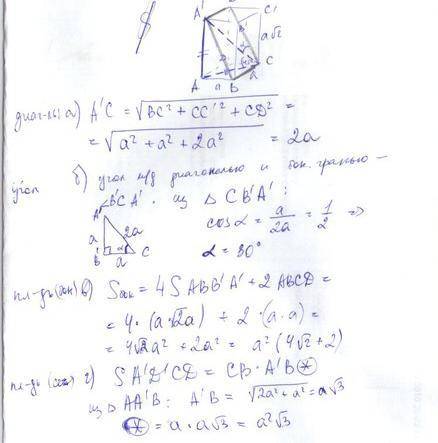 A' C'
a√2
A a B a C
диаг-ль а) A'C = √BC² + CC'² + CD² =
= √a² + a² + 2a² = 2a
угол б) угол м/д диагональю и бок. гранью –
∠B'CA'. из △ CB'A':
A'
a 2a
B' α C
a
cos α = a/2a = 1/2 =>
α = 30°
пл-дь (бок) в) Sбок = 4SABB'A' + 2ABCD =
= 4·(a·√2a) + 2·(a·a) =
= 4√2a² + 2a² = a²(4√2+2)
пл-дь (сеч) г) SA'D'CD = CB·A'B ⊛
из △AA'B: A'B = √2a²+a² = a√3
⊛ = a·a√3 = a²√3